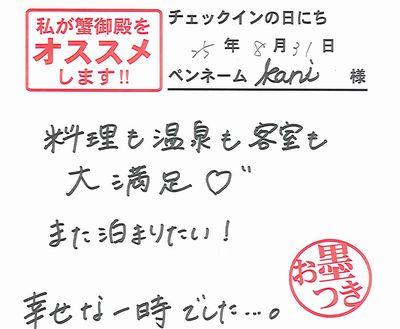 私が蟹御殿を
オススメ
します!!
チェックインの日にち
25年8月31日
ペンネーム kani 様
料理も温泉も客室も
大満足♡
また泊まりたい!
お墨つき
幸せな一時でした…。